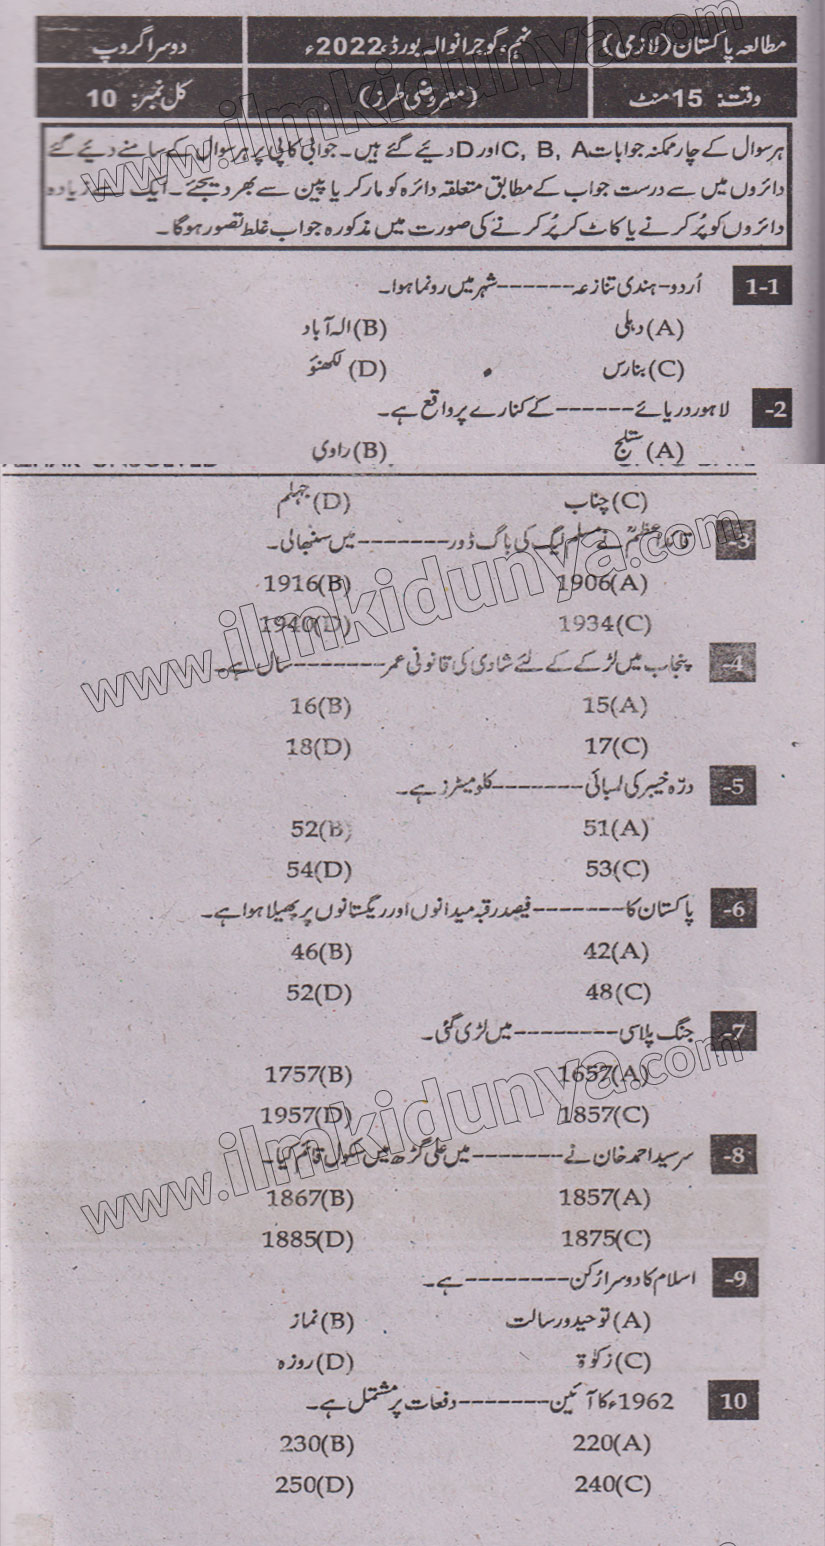 مطالعہ پاکستان (لازمی) نہم، گوجرانوالہ بورڈ، 2022ء دوسرا گروپ
وقت: 15 منٹ (معروضی طرز) کل نمبر: 10
ہر سوال کے چار ممکنہ جوابات C, B, A اور D دیئے گئے ہیں۔ جوابی کاپی پر ہر سوال کے سامنے دیئے گئے
دائروں میں سے درست جواب کے مطابق متعلقہ دائرہ کو مارکر یا پین سے بھر دیجئے۔ ایک سے زیادہ
دائروں کو پُر کرنے یا کاٹ کر پُر کرنے کی صورت میں مذکورہ جواب غلط تصور ہوگا۔
1-1 اُردو-ہندی تنازعہ ------ شہر میں رونما ہوا۔
(A) دہلی (B) الٰہ آباد
(C) بنارس (D) لکھنؤ
2- لاہور دریائے ------ کے کنارے پر واقع ہے۔
(A) ستلج (B) راوی
(C) چناب (D) جہلم
3- قائداعظمؒ نے مسلم لیگ کی باگ ڈور -------- میں سنبھالی۔
(A) 1906 (B) 1916
(C) 1934 (D) 1940
4- پنجاب میں لڑکے کے لئے شادی کی قانونی عمر -------- سال ہے۔
(A) 15 (B) 16
(C) 17 (D) 18
5- درّہ خیبر کی لمبائی -------- کلومیٹرز ہے۔
(A) 51 (B) 52
(C) 53 (D) 54
6- پاکستان کا -------- فیصد رقبہ میدانوں اور ریگستانوں پر پھیلا ہوا ہے۔
(A) 42 (B) 46
(C) 48 (D) 52
7- جنگ پلاسی --------- میں لڑی گئی۔
(A) 1657 (B) 1757
(C) 1857 (D) 1957
8- سرسید احمد خان نے -------- میں علی گڑھ میں سکول قائم کیا۔
(A) 1857 (B) 1867
(C) 1875 (D) 1885
9- اسلام کا دوسرا رُکن --------- ہے۔
(A) توحید و رسالت (B) نماز
(C) زکوٰۃ (D) روزہ
10 1962ء کا آئین -------- دفعات پر مشتمل ہے۔
(A) 220 (B) 230
(C) 240 (D) 250
www.ilmkidunya.com
www.ilmkidunya.com
www.ilmkidunya.com